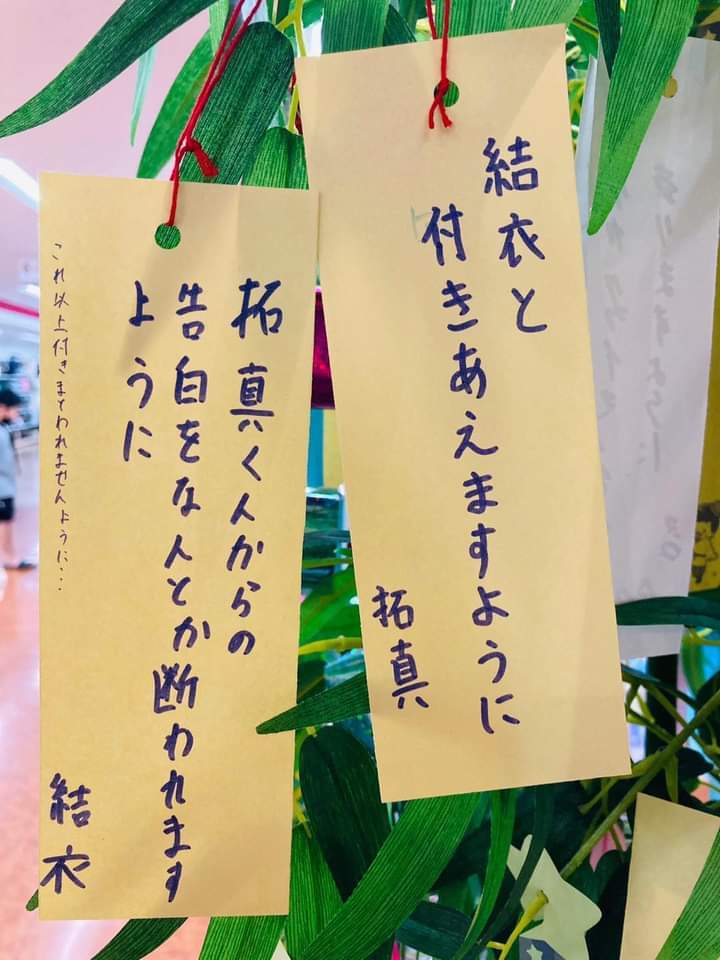 結衣と
付きあえますように
拓真
拓真くんからの
告白をなんとか断われます
ように
結衣
これ以上付きまとわれませんように...